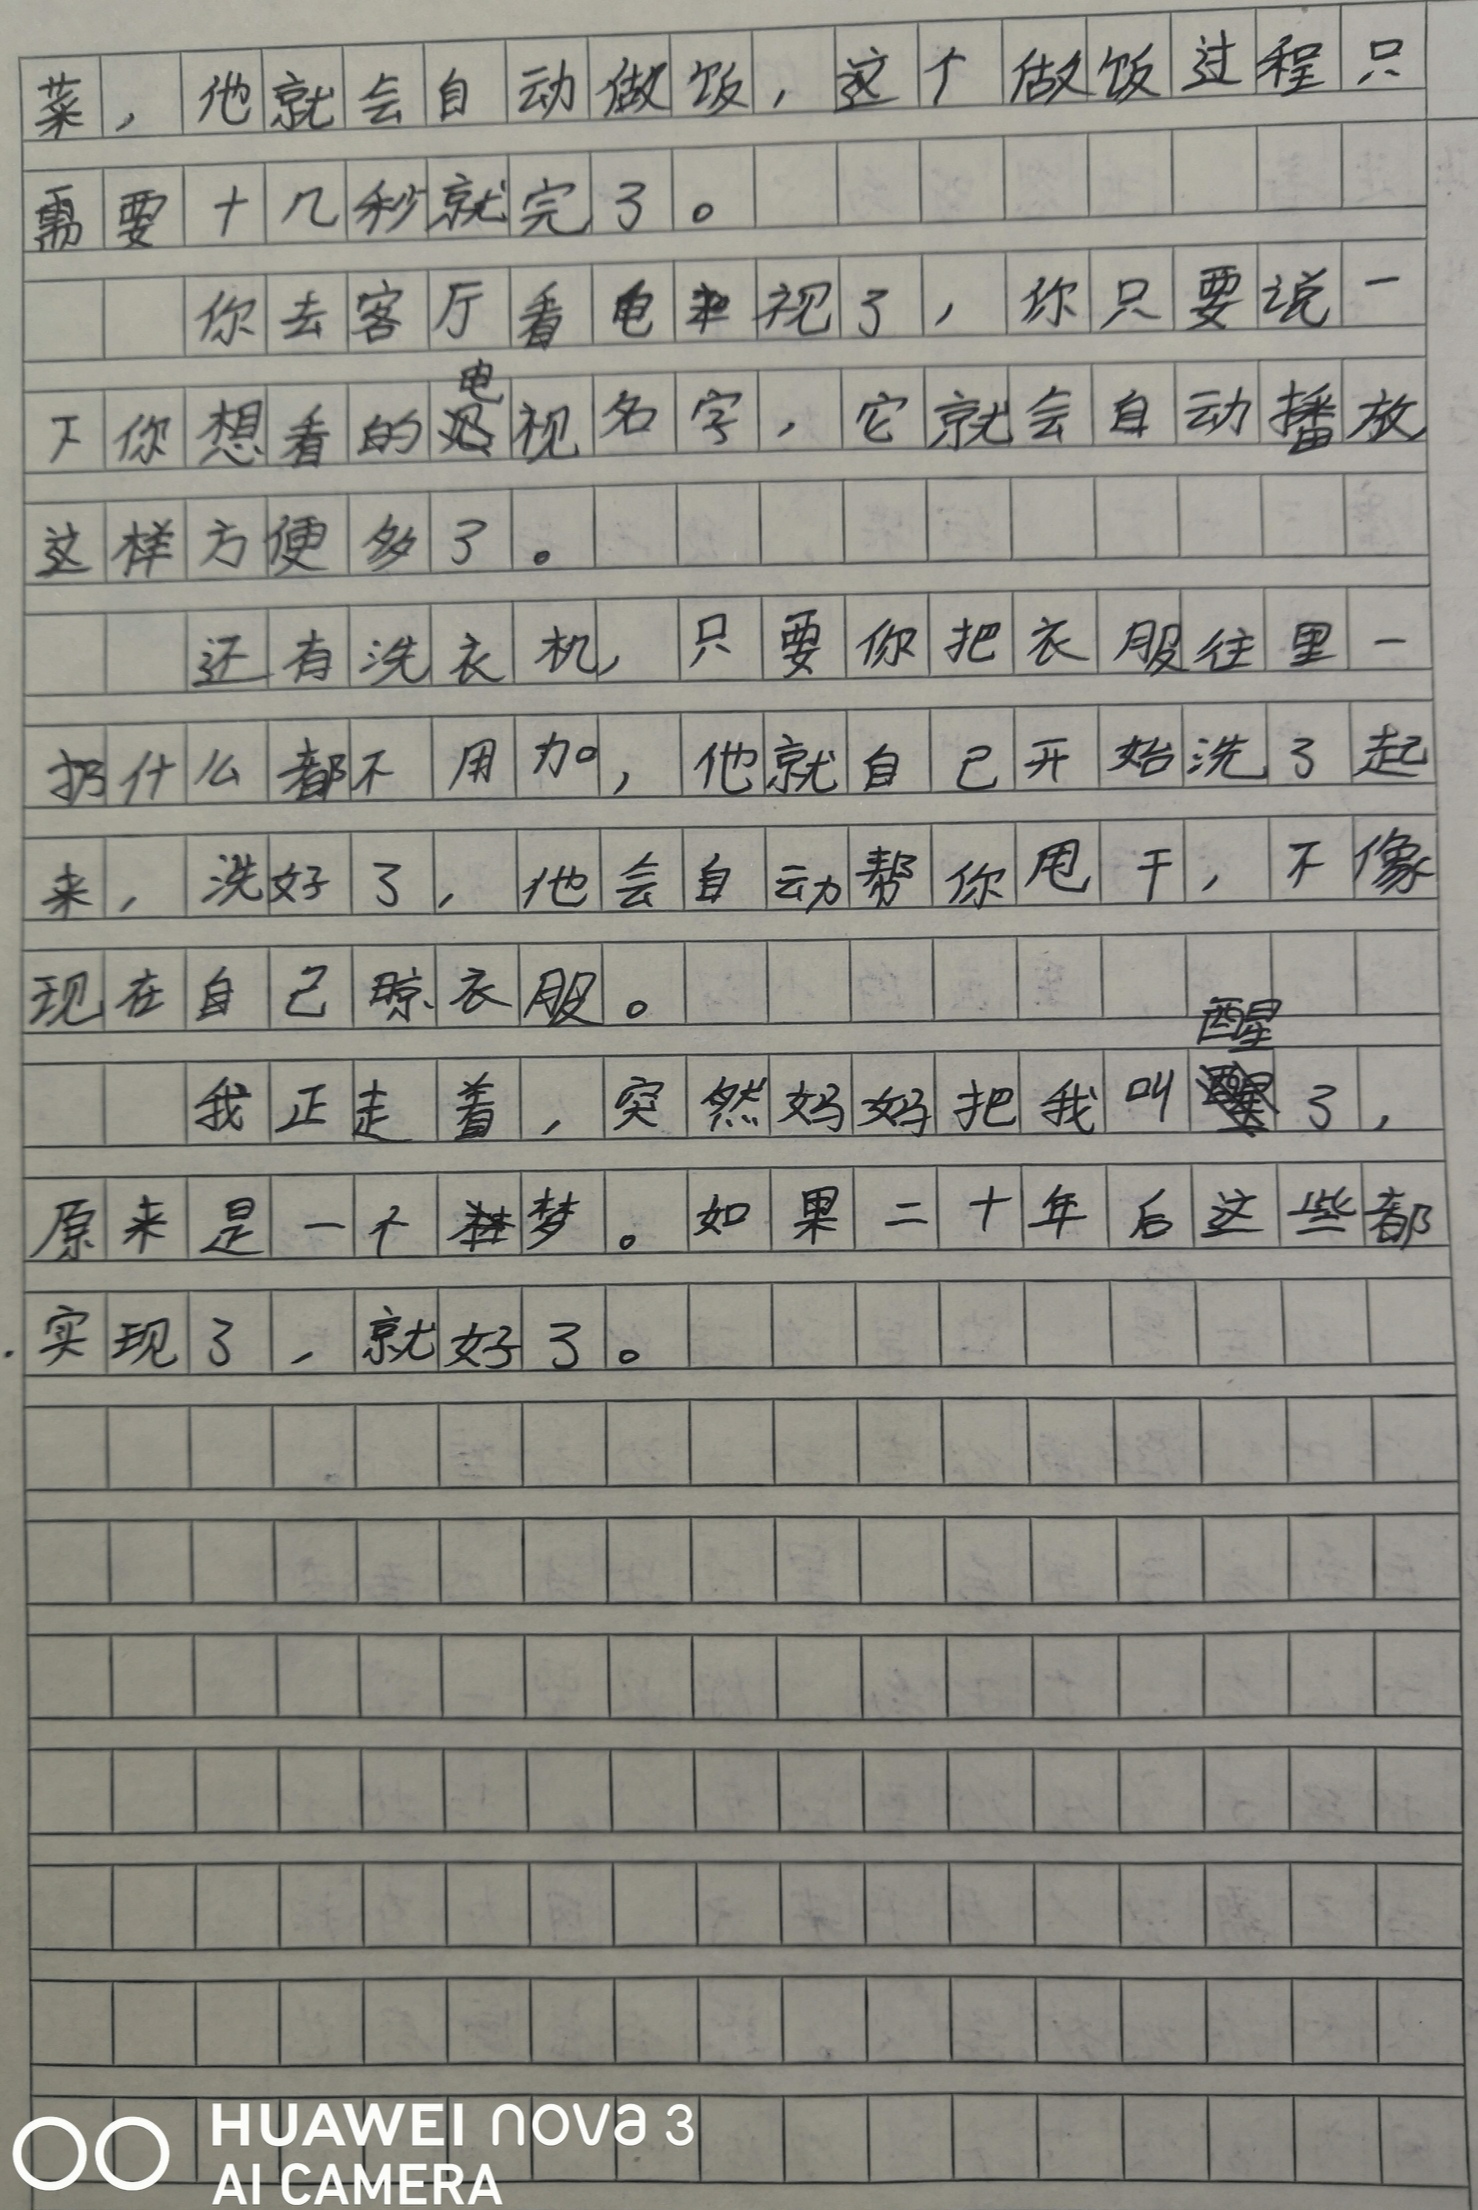 菜，他就会自动做饭，这个做饭过程只
需要十几秒就完了。
你去客厅看电视了，你只要说一
下你想看的电视名字，它就会自动播放
这样方便多了。
还有洗衣机，只要你把衣服往里一
扔什么都不用加，他就自己开始洗了起
来，洗好了，他会自动帮你甩干，不像
现在自己晾衣服。
我正走着，突然妈妈把我叫醒了，
原来是一个梦。如果二十年后这些都
实现了，就好了。
HUAWEI nova 3
AI CAMERA